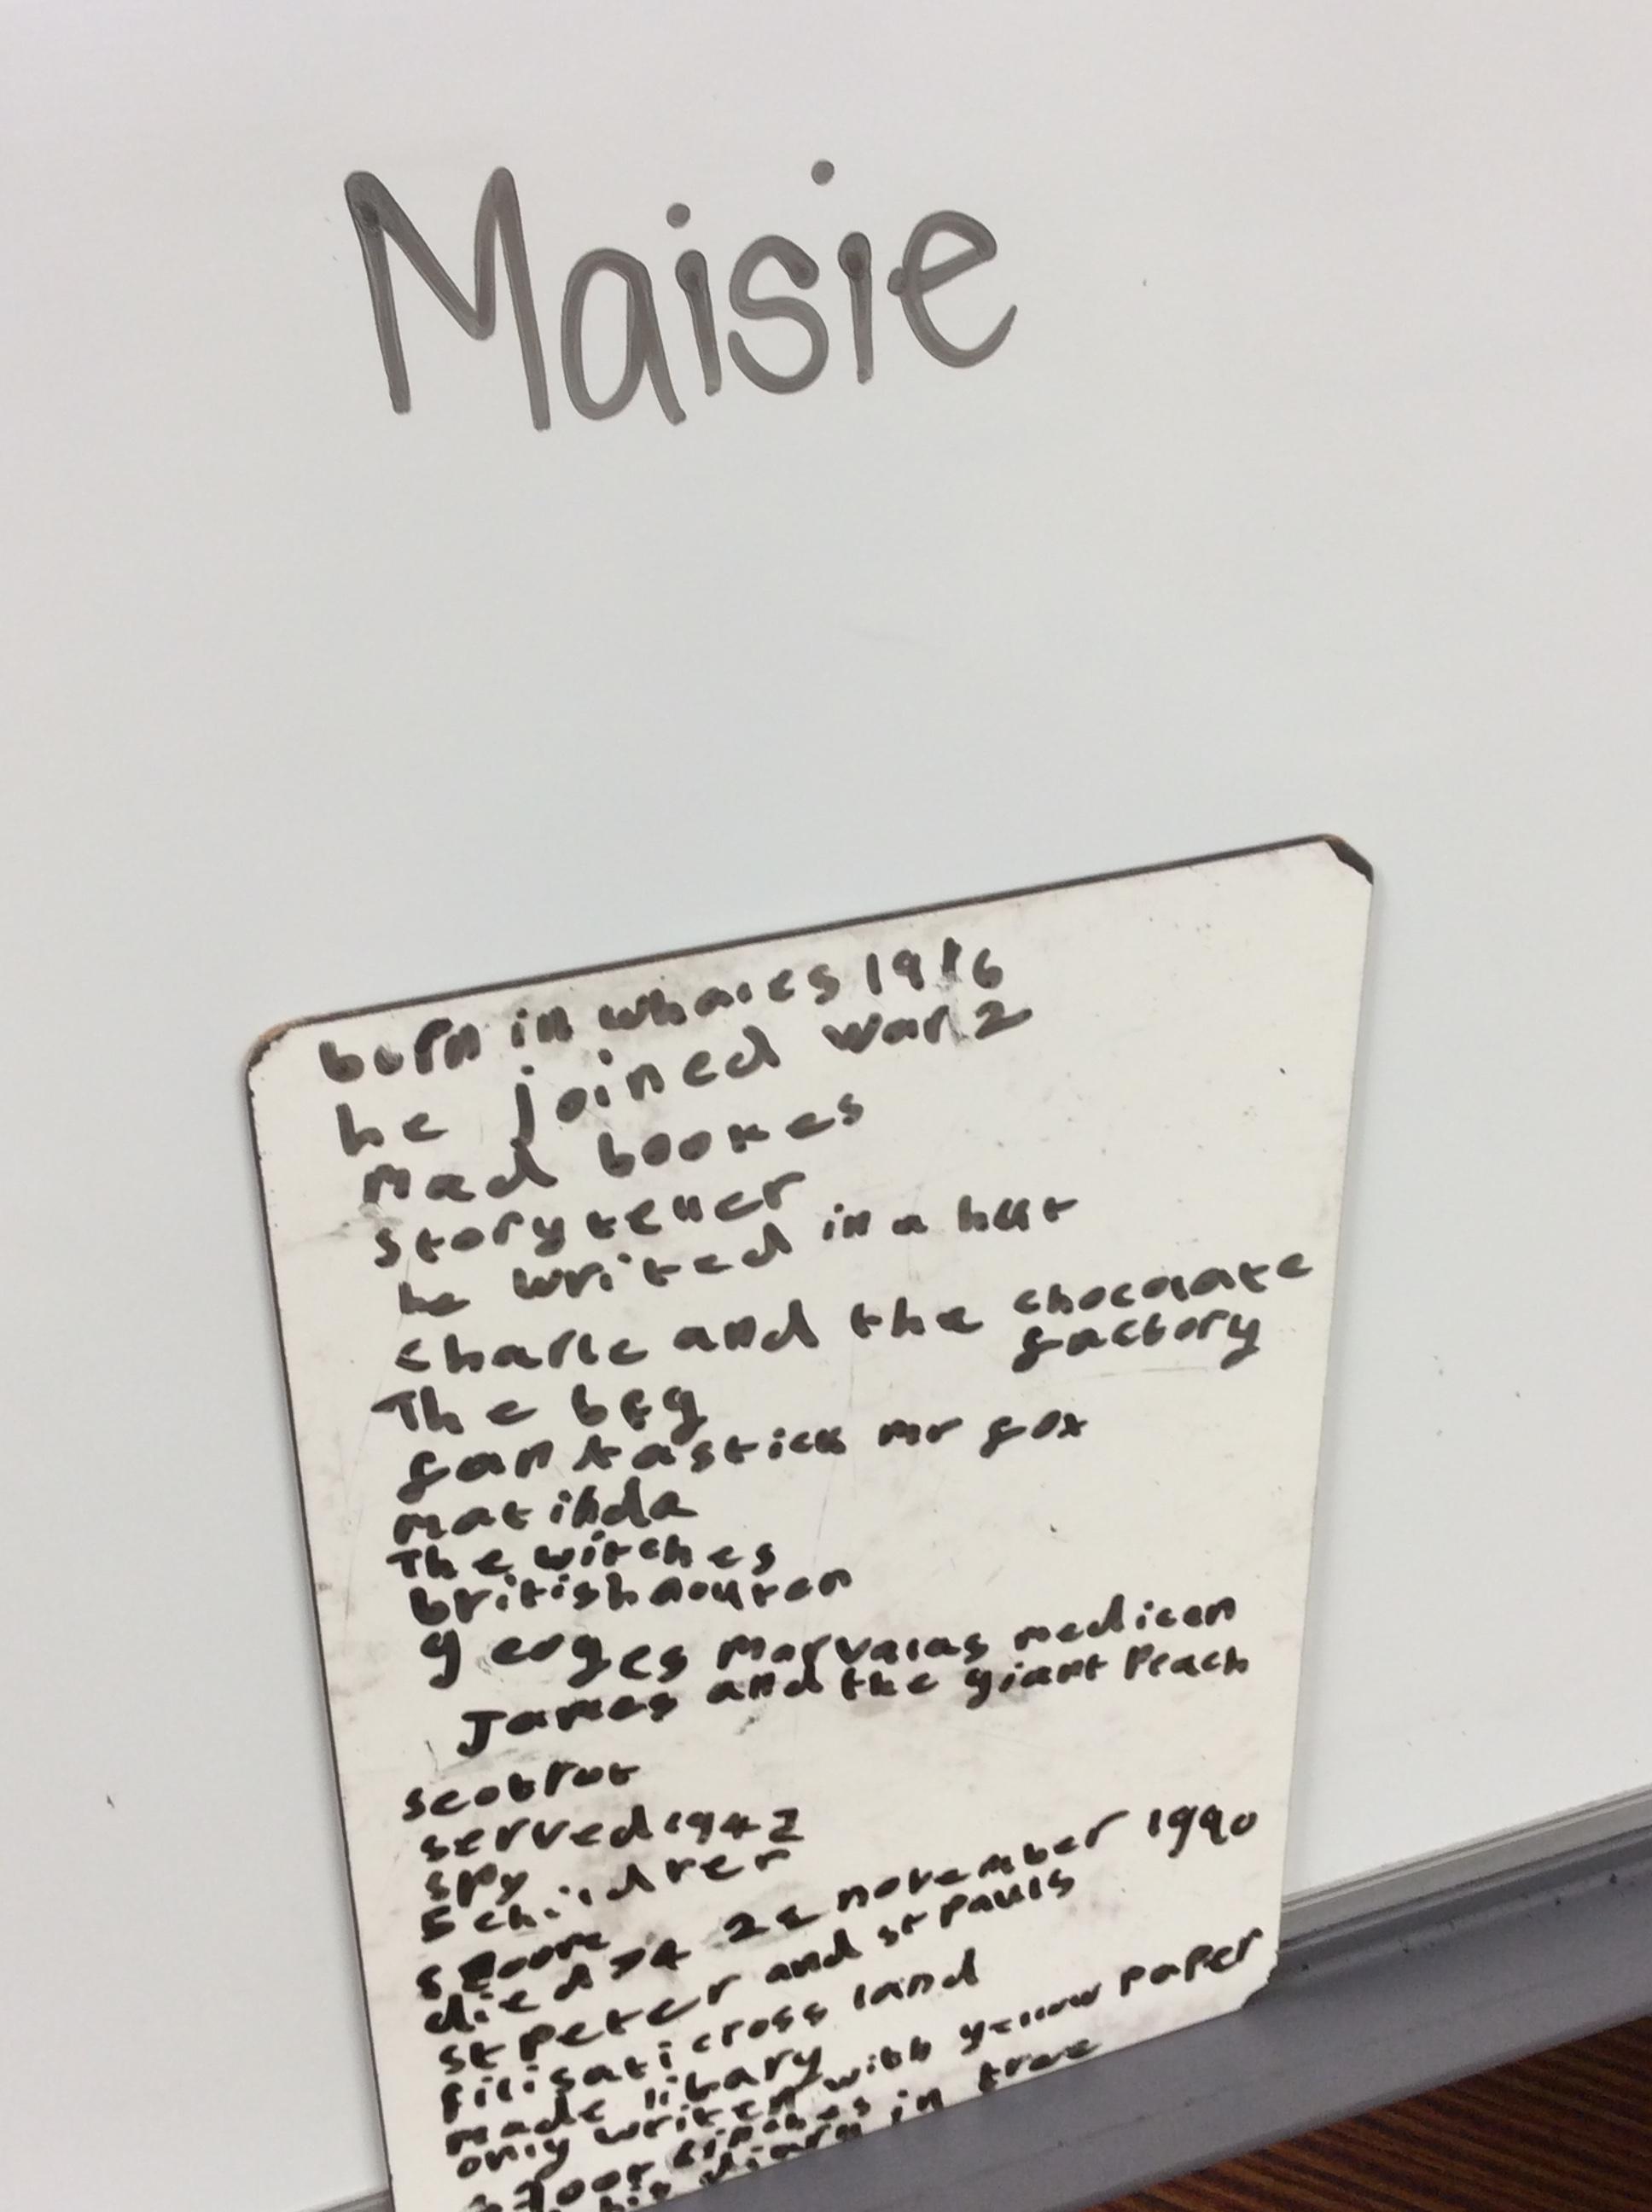 Maisie
born in whales 1916
he joined war 2
Mad bookes
storyteller
he writed in a hut
charle and the chocolate
factory
The bfg
fantastick mr fox
matilhda
The witches
british
gerges marvalas medicen
James and the giant Peach
served 1942
spy
5 children
died 74 november 1990
st peter and st pauls
cross land
made libary
only writen with yellow paper
in tree
diary